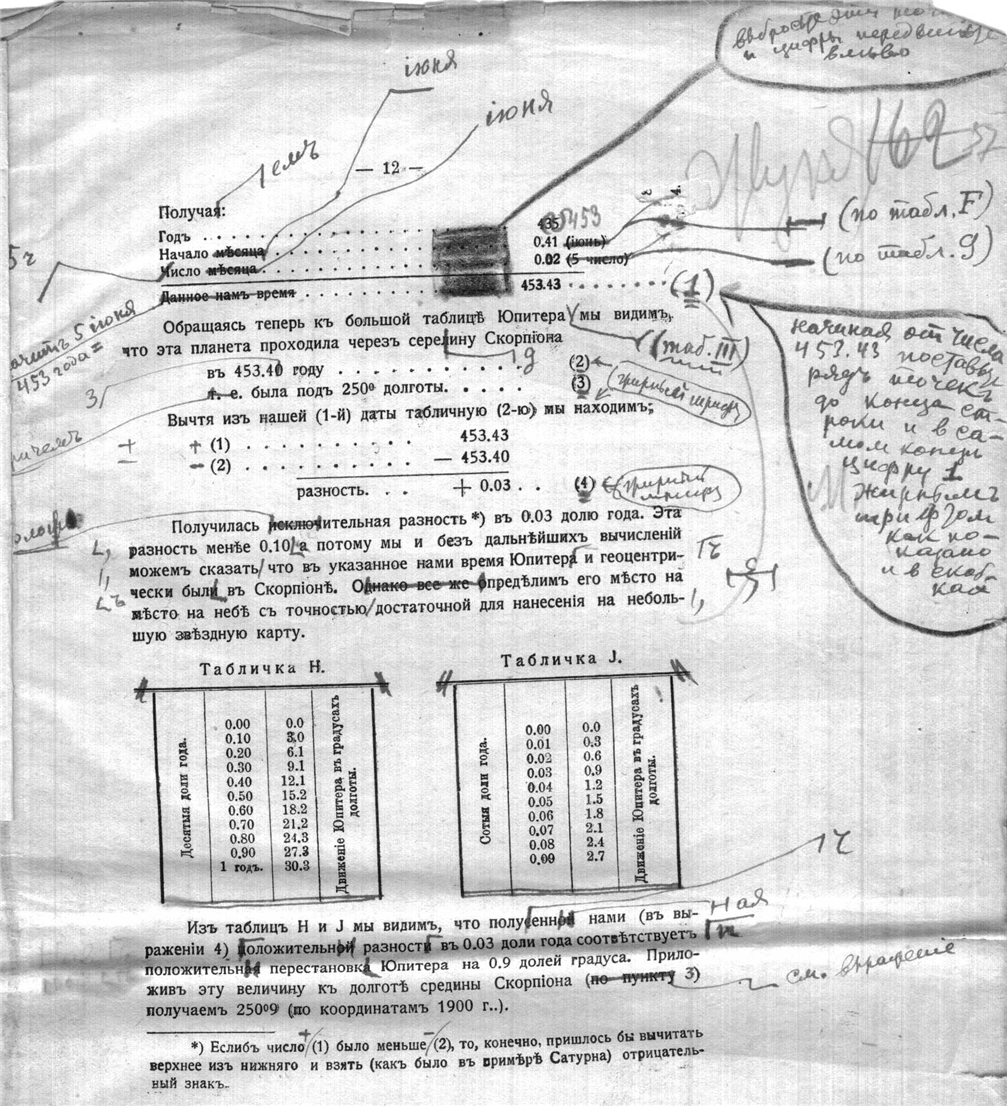 выбросить эти точки
и цифры передвинуть
влево
іюня
іюня
1емъ
— 12 —
162
57
Получая:
Годъ . . . . . . . . . . 435 453
Начало мѣсяца . . . . . . . 0.41 (іюнь)
(по табл. F)
Число мѣсяца . . . . . . . 0.02 (5 число)
(по табл. g)
Данное намъ время . . . . . . 453.43 . . . . . . . (1)
5 іюня
453 года =
Обращаясь теперь къ большой таблицѣ Юпитера мы видимъ,
что эта планета проходила черезъ середину Скорпіона
(таб. III)
въ 453.40 году . . . . . . . . . . (2)
т. е. была подъ 250° долготы. . . . . (3)
жирный шрифтъ
3/
Вычтя изъ нашей (1-й) даты табличную (2-ю) мы находимъ;
+ + (1) . . . . . . . . . . 453.43
— (2) . . . . . . . . . . — 453.40
разность. . . + 0.03 . . (4)
жирный шрифтъ
начиная отъ числа
453.43 поставь
рядъ точекъ
до конца ст-
роки и в са-
момъ концѣ
цифру 1
жирнымъ
шрифтом
как по-
казано
и в скоб-
ках
Получилась исключительная разность *) въ 0.03 долю года. Эта
разность менѣе 0.10 а потому мы и безъ дальнѣйшихъ вычисленій
можемъ сказать что въ указанное нами время Юпитера и геоцентри-
чески были въ Скорпіонѣ. Однако все же опредѣлимъ его мѣсто на
мѣсто на небѣ съ точностью достаточной для нанесенія на неболь-
шую звѣздную карту.
Табличка H.
Десятыя доли года.
Движеніе Юпитера въ градусахъ долготы.
0.00 0.0
0.10 3,0
0.20 6.1
0.30 9.1
0.40 12.1
0.50 15.2
0.60 18.2
0.70 21.2
0.80 24.3
0.90 27.3
1 годъ. 30.3
Табличка J.
Сотыя доли года.
Движеніе Юпитера въ градусахъ долготы.
0.00 0.0
0.01 0.3
0.02 0.6
0.03 0.9
0.04 1.2
0.05 1.5
0.06 1.8
0.07 2.1
0.08 2.4
0.09 2.7
Изъ таблицъ H и J мы видимъ, что полученной нами (въ вы-
ная
раженіи 4) положительной разности въ 0.03 доли года соотвѣтствуетъ
положительная перестановка Юпитера на 0.9 долей градуса. Прило-
живъ эту величину къ долготѣ средины Скорпіона (по пункту 3)
см. выраженіе
получаемъ 250°9 (по координатамъ 1900 г..).
*) Еслибъ число (1) было меньше (2), то, конечно, пришлось бы вычитать
верхнее изъ нижняго и взять (какъ было въ примѣрѣ Сатурна) отрицатель-
ный знакъ.